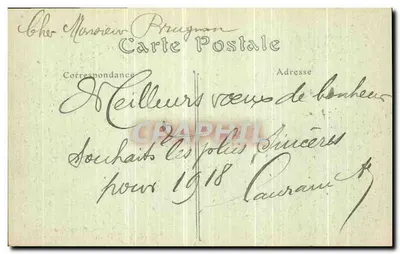 Cher Monsieur Brugnon
Carte Postale
Correspondance
Adresse
Meilleurs vœux de bonheur
&
CPAPHIL
souhaits les plus sincères
pour 1918